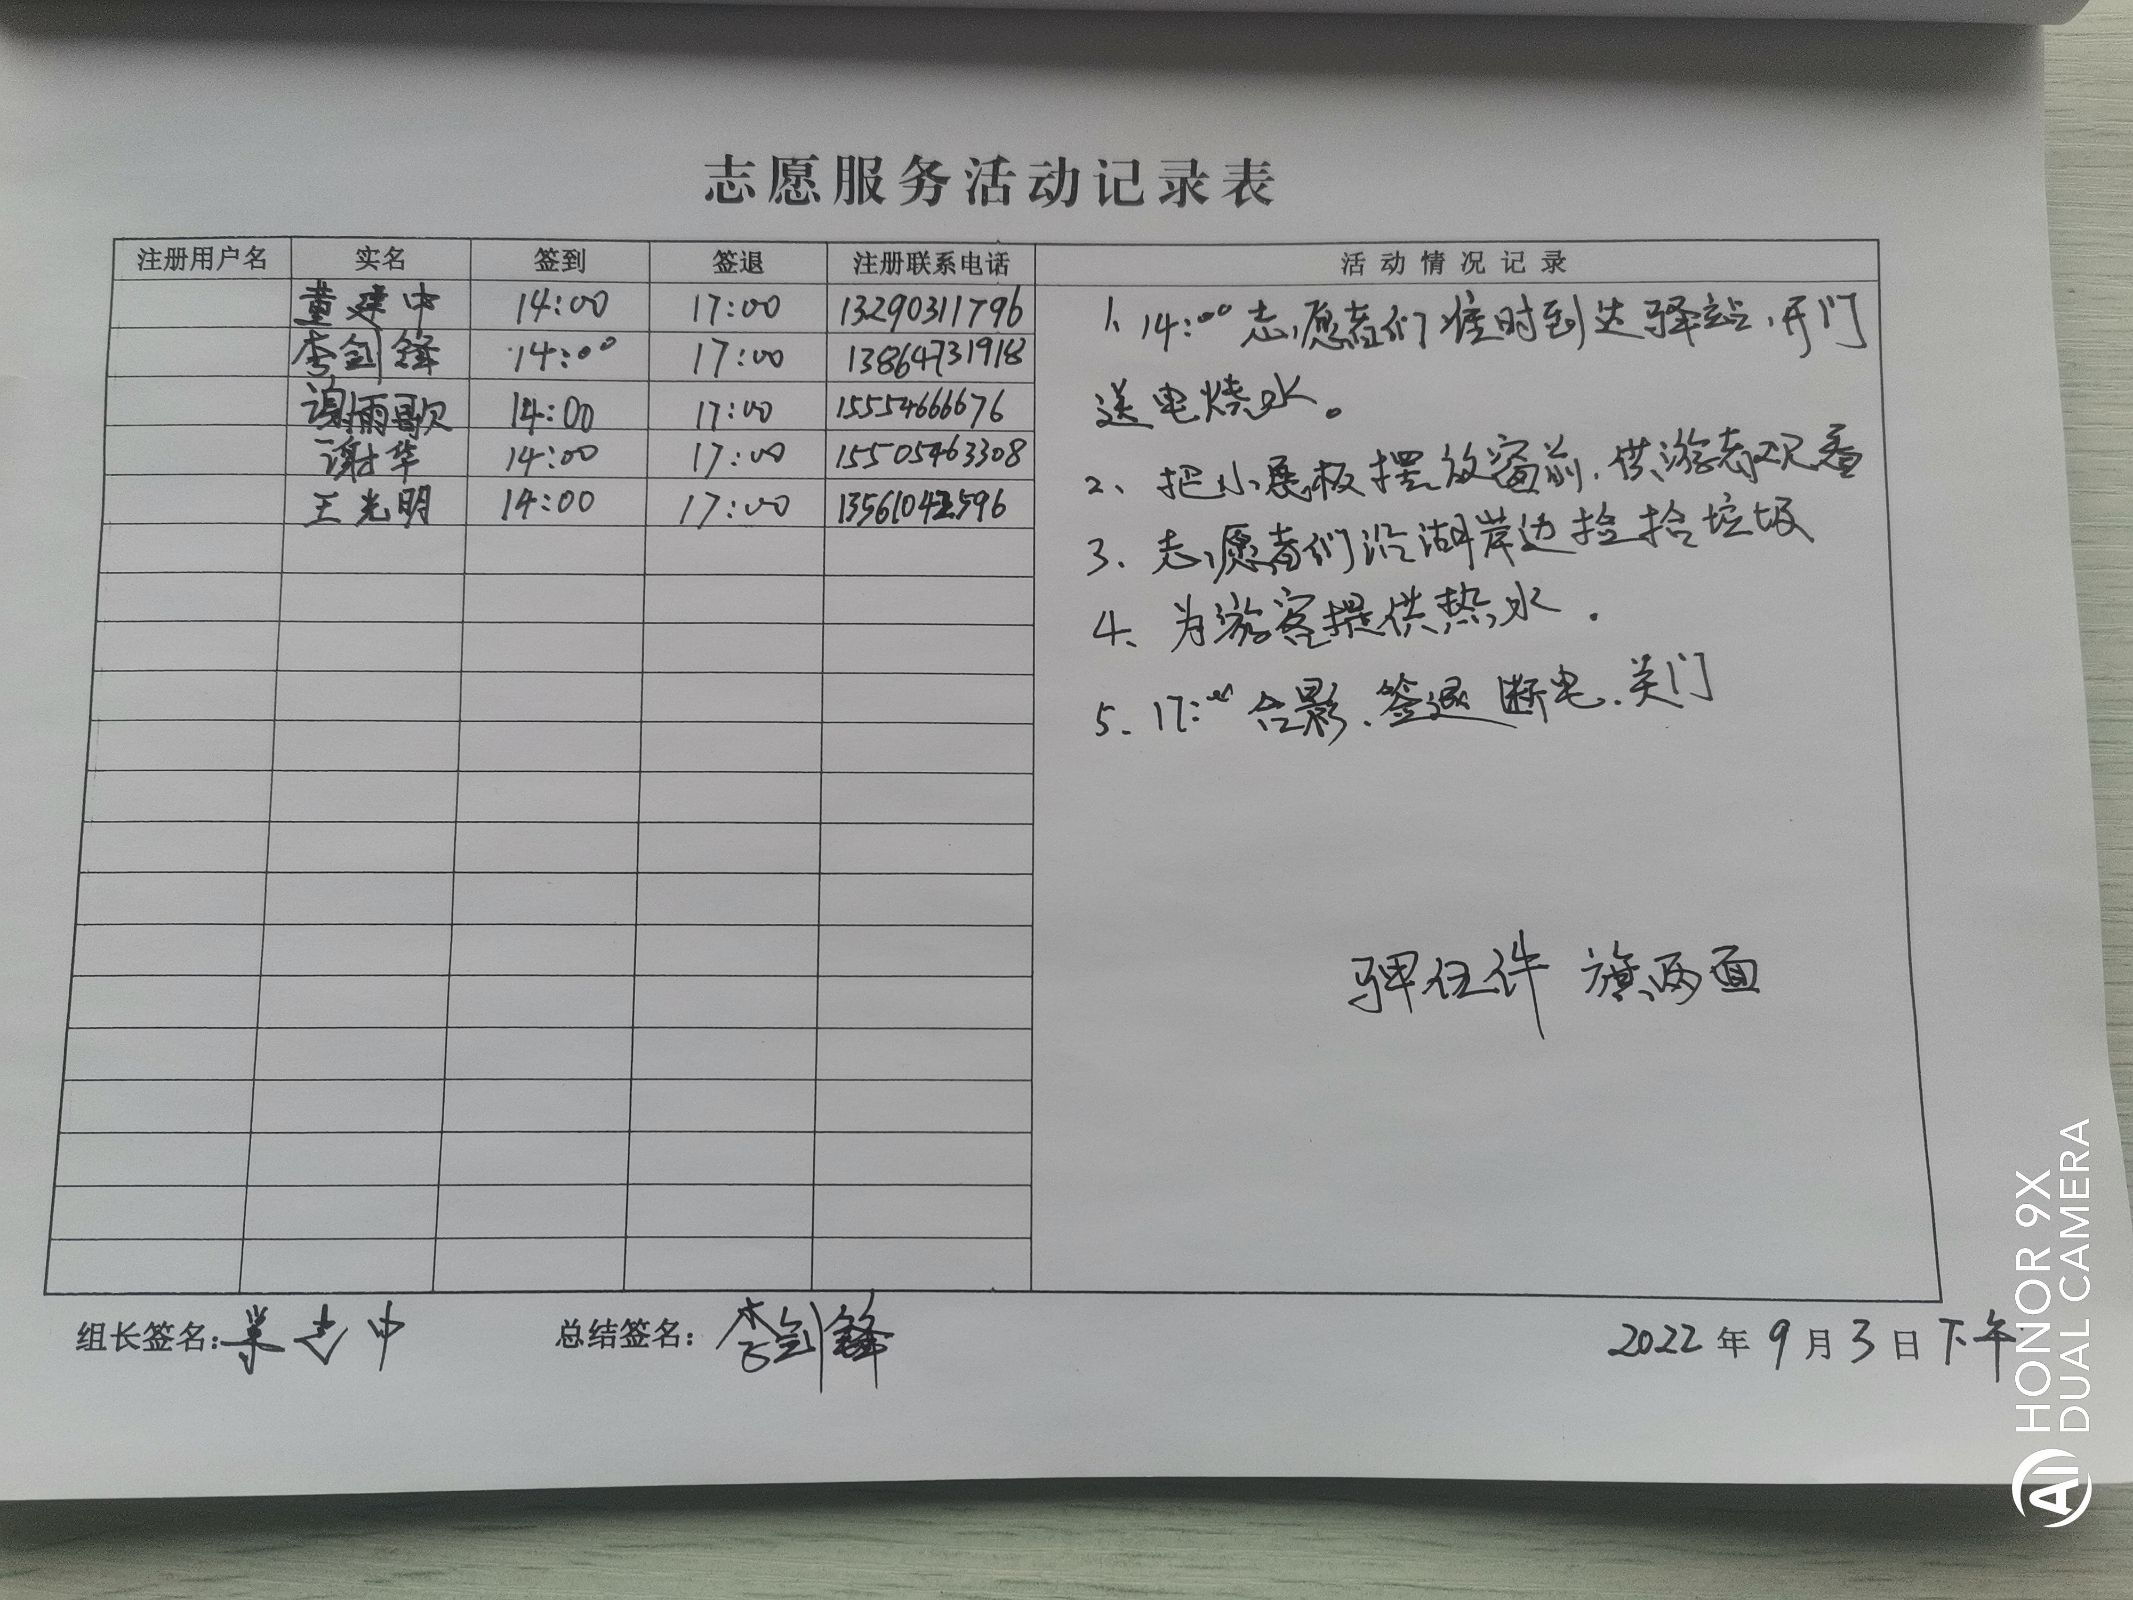 志愿服务活动记录表
注册用户名 实名 签到 签退 注册联系电话 活动情况记录
董建中 14:00 17:00 13290311796
李剑锋 14:00 17:00 13864731918
谢雨歌 14:00 17:00 15554666676
谢华 14:00 17:00 15505463308
王光明 14:00 17:00 13561042596
1、14:00 志愿者们准时到达驿站,开门
送电烧水。
2、把小展板摆放窗前,供游客观看
3、志愿者们沿湖岸边捡拾垃圾
4、为游客提供热水.
5.17:00 合影、签退 断电.关门
旗两面
组长签名: 总结签名:李剑锋 2022年9月3日下午
HONOR 9X
DUAL CAMERA
AI